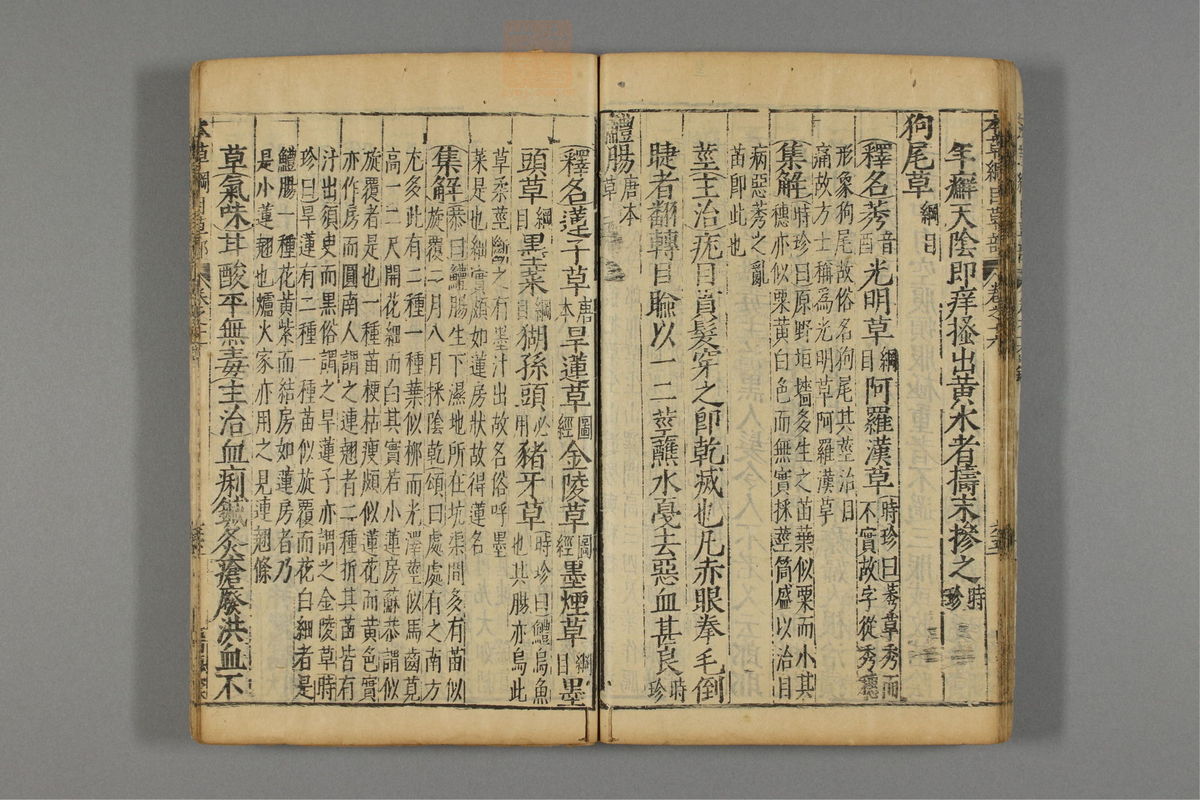 年癬天陰即痒搔出黃水者擣末摻之時珍
狗尾草綱目
釋名莠音酉光明草綱目阿羅漢草時珍曰莠草秀而不實故字從秀穗
形象狗尾故俗名狗尾其莖治目痛故方士稱爲光明草阿羅漢草
集解時珍曰原野垣墻多生之苗葉似粟而小其穗亦似粟黃白色而無實採莖筒盛以治目
病惡莠之亂苗即此也
莖主治疣目貫髮穿之即乾滅也凡赤眼拳毛倒
睫者翻轉目瞼以一二莖蘸水戞去惡血甚良時珍
鱧腸唐本草
釋名蓮子草唐本旱蓮草圖經金陵草圖經墨煙草綱目墨
頭草綱目墨菜綱目猢孫頭必用豬牙草時珍曰鱧烏魚也其腸亦烏此
草柔莖斷之有墨汁出故名俗呼墨菜是也細實頗如蓮房狀故得蓮名
集解恭曰鱧腸生下濕地所在坑渠間多有苗似旋覆二月八月採陰乾頌曰處處有之南方
尤多此有二種一種葉似柳而光澤莖似馬齒莧高一二尺開花細而白其實若小蓮房蘇恭謂似
旋覆者是也一種苗梗枯瘦頗似蓮花而黃色實亦作房而圓南人謂之連翹者二種折其苗皆有
汁出須臾而黑俗謂之旱蓮子亦謂之金陵草時珍曰旱蓮有二種一種苗似旋覆而花白細者是
鱧腸一種花黃紫而結房如蓮房者乃是小蓮翹也爐火家亦用之見連翹條
草氣味甘酸平無毒主治血痢鍼灸瘡發洪血不